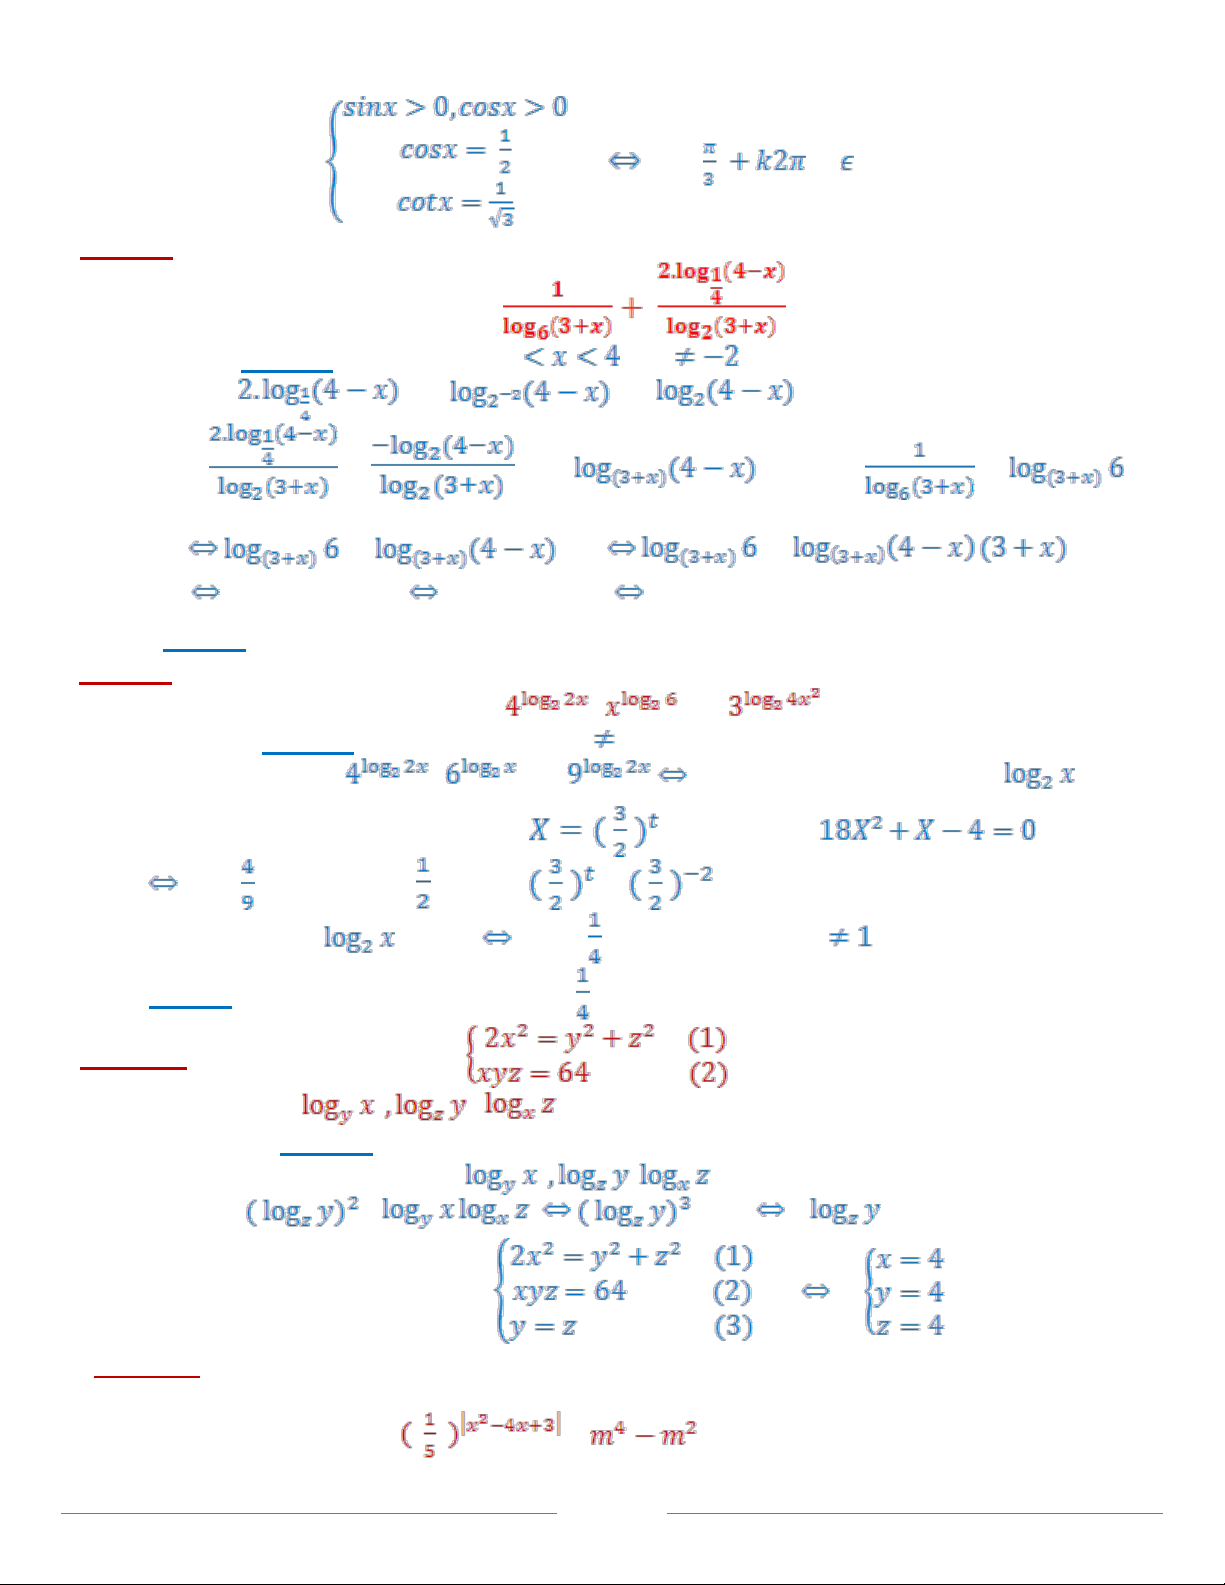 {sinx > 0, cosx > 0
cosx = 1/2 ⇔ π/3 + k2π ϵ
cotx = 1/√3
1/log₆(3+x) + 2.log_{1/4}(4−x)/log₂(3+x)
< x < 4 ≠ −2
2.log_{1/4}(4 − x) log_{2⁻²}(4 − x) log₂(4 − x)
2.log_{1/4}(4−x)/log₂(3+x) −log₂(4−x)/log₂(3+x) log_{(3+x)}(4 − x) 1/log₆(3+x) log_{(3+x)} 6
⇔ log_{(3+x)} 6 log_{(3+x)}(4 − x) ⇔ log_{(3+x)} 6 log_{(3+x)}(4 − x) (3 + x)
⇔ ⇔ ⇔
4^{log₂ 2x} x^{log₂ 6} 3^{log₂ 4x²}
≠
4^{log₂ 2x} 6^{log₂ x} 9^{log₂ 2x} ⇔ log₂ x
X = (3/2)^t 18X² + X − 4 = 0
⇔ 4/9 1/2 (3/2)^t (3/2)^{−2}
log₂ x ⇔ 1/4 ≠ 1
1/4
{2x² = y² + z² (1)
xyz = 64 (2)
log_y x , log_z y log_x z
log_y x , log_z y log_x z
(log_z y)² log_y x log_x z ⇔ (log_z y)³ ⇔ log_z y
{2x² = y² + z² (1) {x = 4
xyz = 64 (2) ⇔ y = 4
y = z (3) z = 4
(1/5)^{|x²−4x+3|} m⁴ − m²